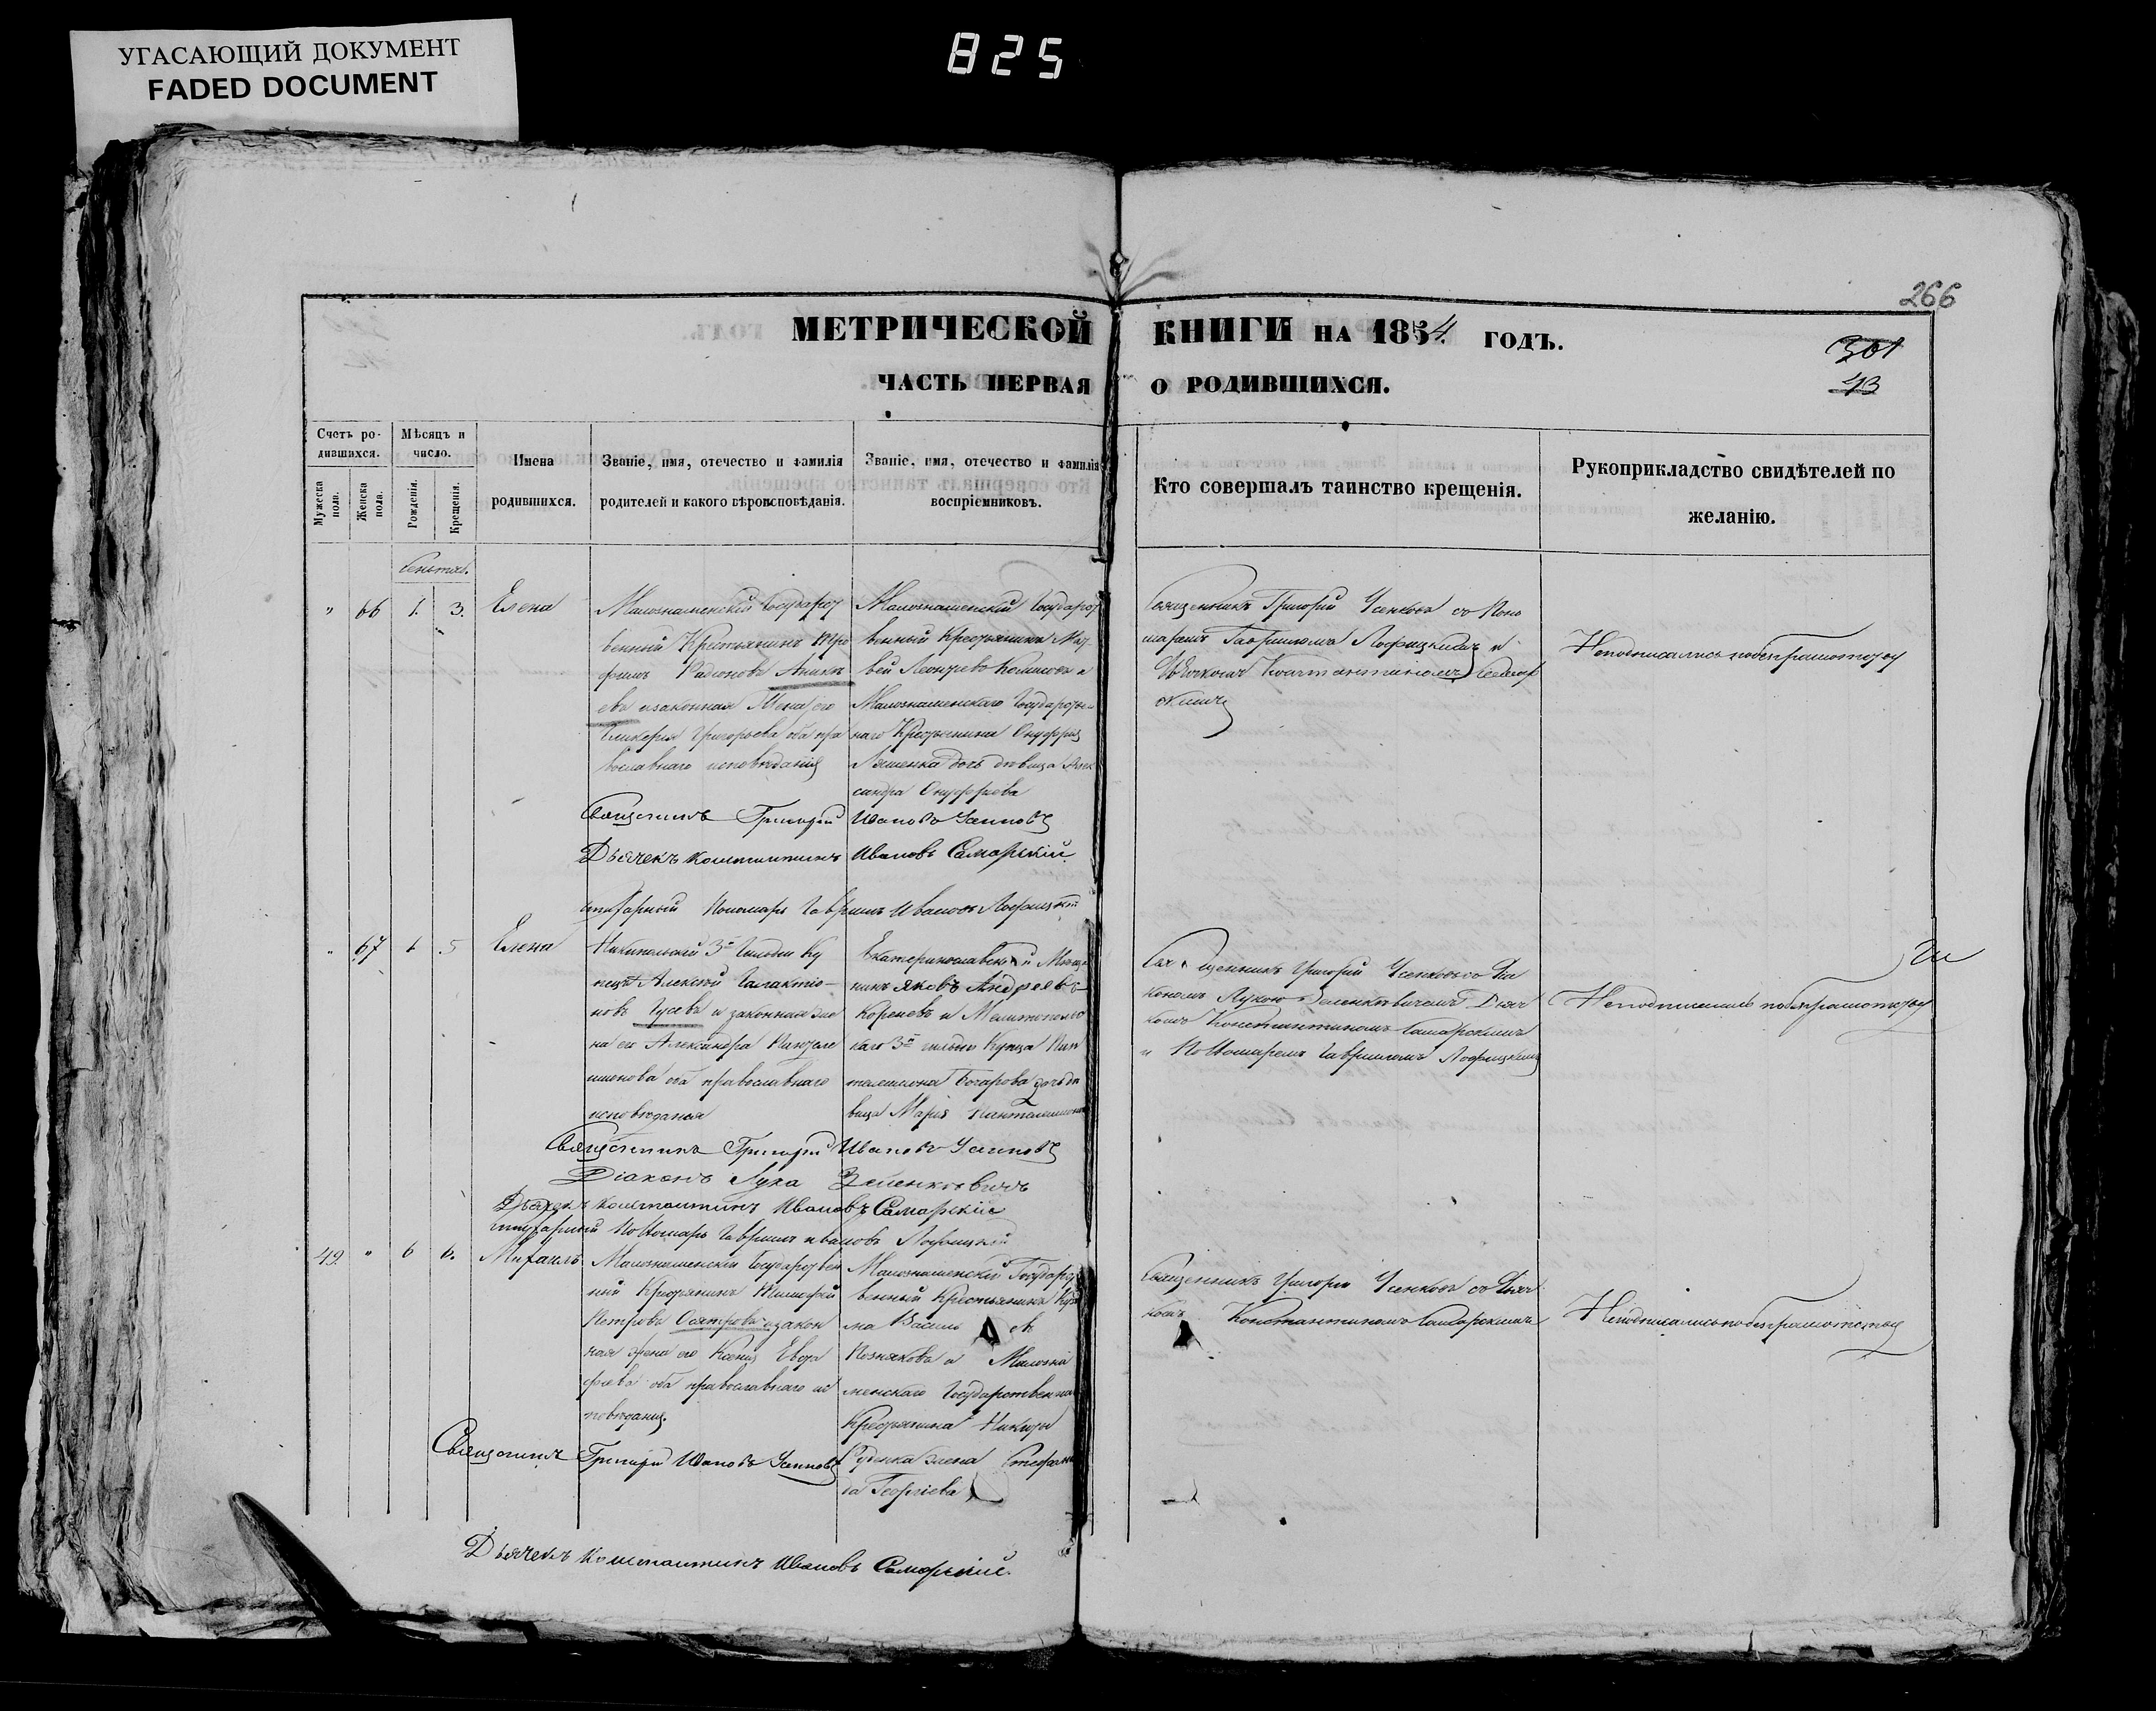 УГАСАЮЩИЙ ДОКУМЕНТ
FADED DOCUMENT
825
266
МЕТРИЧЕСКОЙ КНИГИ НА 1854 ГОДЪ.
301
43
ЧАСТЬ ПЕРВАЯ О РОДИВШИХСЯ.
Счетъ ро-
дившихся.
Мѣсяцъ и
число.
Мужеска
пола.
Женска
пола.
Рожденія.
Крещенія.
Имена
родившихся.
Званіе, имя, отечество и фамилія
родителей и какого вѣроисповѣданія.
Званіе, имя, отечество и фамилія
воспріемниковъ.
Кто совершалъ таинство крещенія.
Рукоприкладство свидѣтелей по
желанію.
Сентяб.
" 66 1. 3. Елена
Малознаменскій Государст
венный Крестьянинъ
Радіоновъ Аникѣ
евъ и законная Жена его
Гликерія Григорьева оба пра
вославнаго исповѣданія
Малознаменскій Государст
венный Крестьянинъ
вей Леонтьевъ и
Малознаменскаго Государствен
наго Крестьянина Онуфрія
Ляшенка дочь дѣвица Алек
сандра Онуфріева
Священникъ Григорій Усенковъ съ Поно
маремъ Гавріиломъ и
Дьячкомъ Константиномъ Самар
скимъ
Неподписались побезграмотству
Священникъ Григорій Ивановъ Усенковъ
Дьячекъ Константинъ Ивановъ Самарскій
Пономарь Гавріилъ Ивановъ
" 67 1 5 Елена
Никипольскій 3й Гильдіи Ку
пецъ Алексѣй Галактіо-
новъ Гусевъ и законная же
на его Александра
оба православнаго
исповѣданія
Екатеринославскій Мѣща
нинъ Яковъ Андреевъ
Кореневъ и Мелитопольс
каго 3й гильдіи Купца Пан
телеимона дочь дѣ
вица Марія Пантелеимонова
Священникъ Григорій Усенковъ со Діа
кономъ Лукою Зеленкевичемъ Дьяч
комъ Константиномъ Самарскимъ
и Пономаремъ Гавріиломъ
Неподписались побезграмотству
Священникъ Григорій Ивановъ Усенковъ
Діаконъ Лука Зеленкевичъ
Дьячекъ Константинъ Ивановъ Самарскій
Пономарь Гавріилъ Ивановъ
49. " 6 6. Михаилъ
Малознаменскій Государствен
ный Крестьянинъ Тимофей
Петровъ и закон
ная жена его Ксенія Евста
фіева оба православнаго ис
повѣданія.
Малознаменскій Государст
венный Крестьянинъ Кузь
ма
Позняковъ и Малозна
менскаго Государственна
Крестьянина Никиты
Руденка жена Стефани
да Георгіева
Священникъ Григорій Усенковъ со Дьяч
комъ Константиномъ Самарскимъ
Неподписались побезграмотству
Священникъ Григорій Ивановъ Усенковъ
Дьячекъ Константинъ Ивановъ Самарскій.